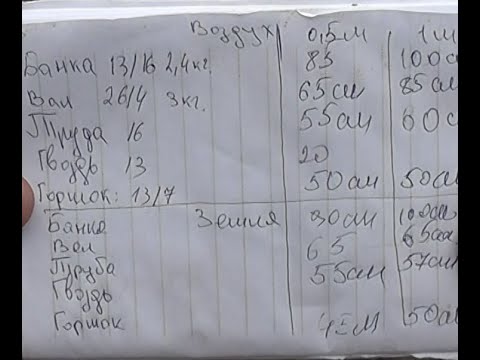 Воздух 0,5м 1м
Банка 13/16 2,4кг. 85 100с
Вал 26/4 3кг. 65см 85см
Труба 16 55см 60с
Гвоздь 13 20
Горшок: 13/7 50см 50см
Банка Земля 90см 100см
Вал 65 65см
Труба 55см 57см
Гвоздь
Горшок 45м 50см